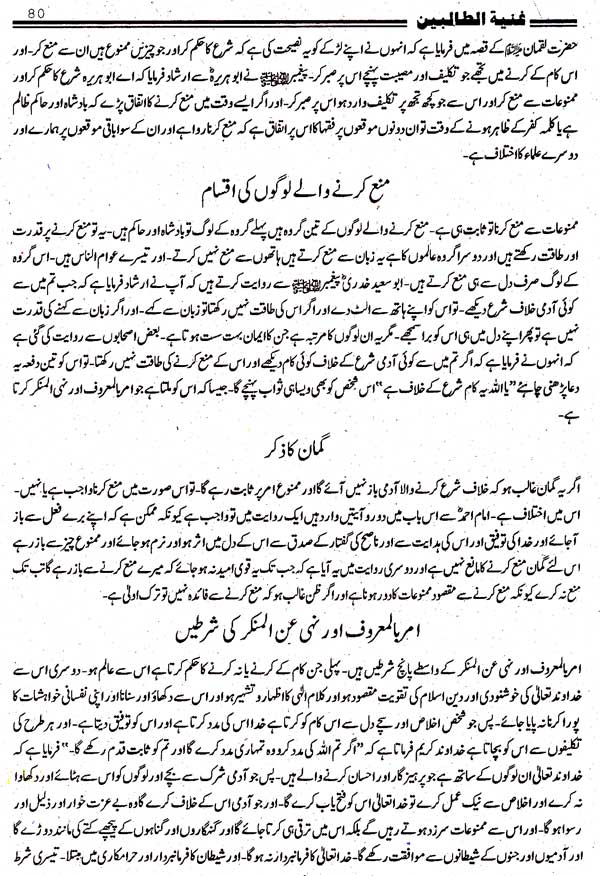 80
غنیۃ الطالبین
حضرت لقمان ﷺ کے قصہ میں فرمایا ہے کہ انہوں نے اپنے لڑکے کو یہ نصیحت کی ہے کہ شرع کا حکم کر اور جو چیزیں ممنوع ہیں ان سے منع کر۔ اور
اس کام کے کرنے میں تجھے جو تکلیف اور مصیبت پہنچے اس پر صبر کر۔ پیغمبر ﷺ نے ابو ہریرہؓ سے ارشاد فرمایا کہ اے ابو ہریرہ شرع کا حکم کر اور
ممنوعات سے منع کر اور اس سے جو کچھ تجھ پر تکلیف وارد ہو اس پر صبر کر۔ اور اگر ایسے وقت میں منع کرنے کا اتفاق پڑے کہ بادشاہ اور حاکم ظالم
ہے یا کلمہ کفر کے ظاہر ہونے کے وقت تو ان دونوں موقعوں پر فقہا کا اس پر اتفاق ہے کہ منع کرنا روا ہے اور ان کے سوا باقی موقعوں پر ہمارے اور
دوسرے علماء کا اختلاف ہے۔
منع کرنے والے لوگوں کی اقسام
ممنوعات سے منع کرنا تو ثابت ہی ہے۔ منع کرنے والے لوگوں کے تین گروہ ہیں پہلے گروہ کے لوگ تو بادشاہ اور حاکم ہیں۔ یہ تو منع کرنے پر قدرت
اور طاقت رکھتے ہیں اور دوسرا گروہ عالموں کا ہے یہ زبان سے منع کرتے ہیں ہاتھوں سے منع نہیں کرتے۔ اور تیسرے عوام الناس ہیں۔ اس گروہ
کے لوگ صرف دل سے ہی منع کرتے ہیں۔ ابو سعید خدریؓ پیغمبر ﷺ سے روایت کرتے ہیں کہ آپ نے ارشاد فرمایا ہے کہ جب تم میں سے
کوئی آدمی خلاف شرع دیکھے۔ تو اس کو اپنے ہاتھ سے الٹ دے اور اگر اس کی طاقت نہیں رکھتا تو زبان سے کہے۔ اور اگر زبان سے کہنے کی قدرت
نہیں ہے تو پھر اپنے دل میں ہی اس کو برا سمجھے۔ مگر یہ ان لوگوں کا مرتبہ ہے جن کا ایمان بہت سست ہوتا ہے۔ بعض اصحابوں سے روایت کی گئی ہے
کہ انہوں نے فرمایا ہے کہ اگر تم میں سے کوئی آدمی شرع کے خلاف کوئی کام دیکھے اور اس کے منع کرنے کی طاقت نہیں رکھتا۔ تو اس کو تین دفعہ یہ
دعا پڑھنی چاہئے ”یا اللہ یہ کام شرع کے خلاف ہے“ اس شخص کو بھی ویسا ہی ثواب پہنچے گا۔ جیسا کہ اس کو ملتا ہے جو امر بالمعروف اور نہی المنکر کرتا
ہے۔
گمان کا ذکر
اگر یہ گمان غالب ہو کہ خلاف شرع کرنے والا آدمی باز نہیں آئے گا اور ممنوع امر پر ثابت رہے گا۔ تو اس صورت میں منع کرنا واجب ہے یا نہیں۔
اس میں اختلاف ہے۔ امام احمدؒ سے اس باب میں دو روایتیں وارد ہیں ایک روایت میں تو واجب ہے کیونکہ ممکن ہے کہ اپنے برے فعل سے باز
آ جائے اور خدا کی توفیق اور اس کی ہدایت سے اور ناصح کی گفتار کے صدق سے اس کے دل میں اثر ہو اور نرم ہو جائے اور ممنوع چیز سے باز رہے
اس لئے گمان منع کرنے کا مانع نہیں ہے اور دوسری روایت میں یہ آیا ہے کہ جب تک یہ قوی امید نہ ہو جائے کہ میرے منع کرنے سے باز رہے گا تب تک
منع نہ کرے کیونکہ منع کرنے سے مقصود ممنوعات کا دور ہونا ہے اور اگر ظن غالب ہو کہ منع کرنے سے فائدہ نہیں تو ترک اولیٰ ہے۔
امر بالمعروف اور نہی عن المنکر کی شرطیں
امر بالمعروف اور نہی عن المنکر کے واسطے پانچ شرطیں ہیں۔ پہلی جن کام کے کرنے یا نہ کرنے کا حکم کرتا ہے اس سے عالم ہو۔ دوسری اس سے
خداوند تعالیٰ کی خوشنودی اور دین اسلام کی تقویت مقصود ہو اور کلام الٰہی کا اظہار و تشہیر ہو اور اس سے دکھاؤ اور سنانا اور اپنی نفسانی خواہشات کا
پورا کرنا نہ پایا جائے۔ پس جو شخص اخلاص اور سچے دل سے اس کام کو کرتا ہے خدا اس کی مدد کرتا ہے اور اس کو توفیق دیتا ہے۔ اور ہر طرح کی
تکلیفوں سے اس کو بچاتا ہے خداوند کریم فرماتا ہے کہ ”اگر تم اللہ کی مدد کرو وہ تمہاری مدد کرے گا اور تم کو ثابت قدم رکھے گا۔“ فرمایا ہے کہ
خداوند تعالیٰ ان لوگوں کے ساتھ ہے جو پرہیزگار اور احسان کرنے والے ہیں۔ پس جو آدمی شرک سے بچے اور لوگوں کو اس سے ہٹائے اور دکھاوا
نہ کرے اور اخلاص سے نیک عمل کرے تو خدا تعالیٰ اس کو فتح یاب کرے گا۔ اور جو آدمی اس کے خلاف کرے گا وہ بے عزت خوار اور ذلیل اور
رسوا ہو گا۔ اور اس سے ممنوعات سرزد ہوتے رہیں گے بلکہ اس میں ترقی ہی کرتا جائے گا اور گنہگاروں اور گناہوں کے پیچھے کتے کی مانند دوڑے گا
اور آدمیوں اور جنوں کے شیطانوں سے موافقت رکھے گا۔ خدا تعالیٰ کا فرمانبردار نہ ہو گا۔ اور شیطان کا فرمانبردار اور حرامکاری میں مبتلا۔ تیسری شرط